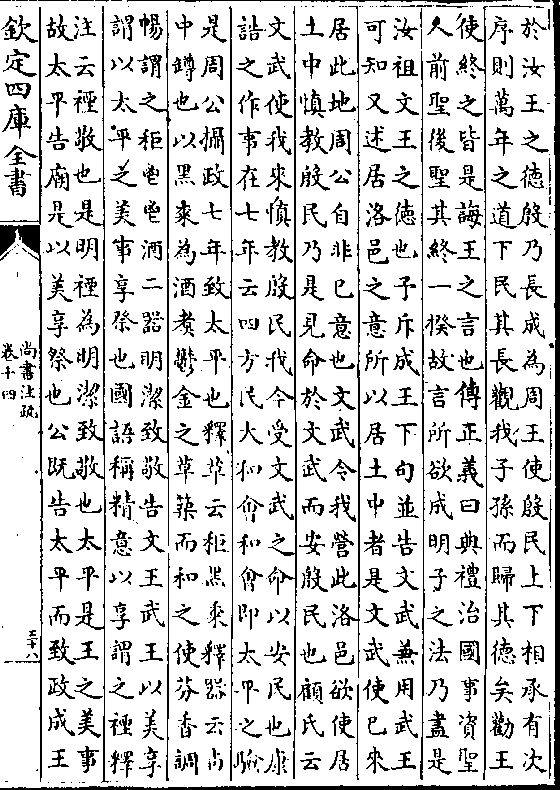 於汝王之德殷乃長成為周王使殷民上下相承有次
序則萬年之道下民其長觀我子孫而歸其德矣勸王
使終之皆是誨王之言也傳正義曰典禮治國事資聖
人前聖後聖其終一揆故言所欲成明子之法乃盡是
汝祖文王之德也予斥成王下句並告文武兼用武王
可知又述居洛邑之意所以居土中者是文武使已來
居此地周公自非已意也文武令我營此洛邑欲使居
土中慎教殷民乃是見命於文武而安殷民也顧氏云
文武使我來慎教殷民我今受文武之命以安民也康
誥之作事在七年云四方民大和會和會即太平之驗
是周公攝政七年致太平也釋草云秬黑黍釋器云卣
中罇也以黑黍為酒煮鬱金之草築而和之使芬香調
暢謂之秬鬯鬯酒二器明潔致敬告文王武王以美享
謂以太平之美事享祭也國語稱精意以享謂之禋釋
注云禋敬也是明禋為明潔致敬也太平是王之美事
故太平告廟是以美享祭也公既告太平而致政成王
欽定四庫全書
尚書注疏
卷十四
三十八